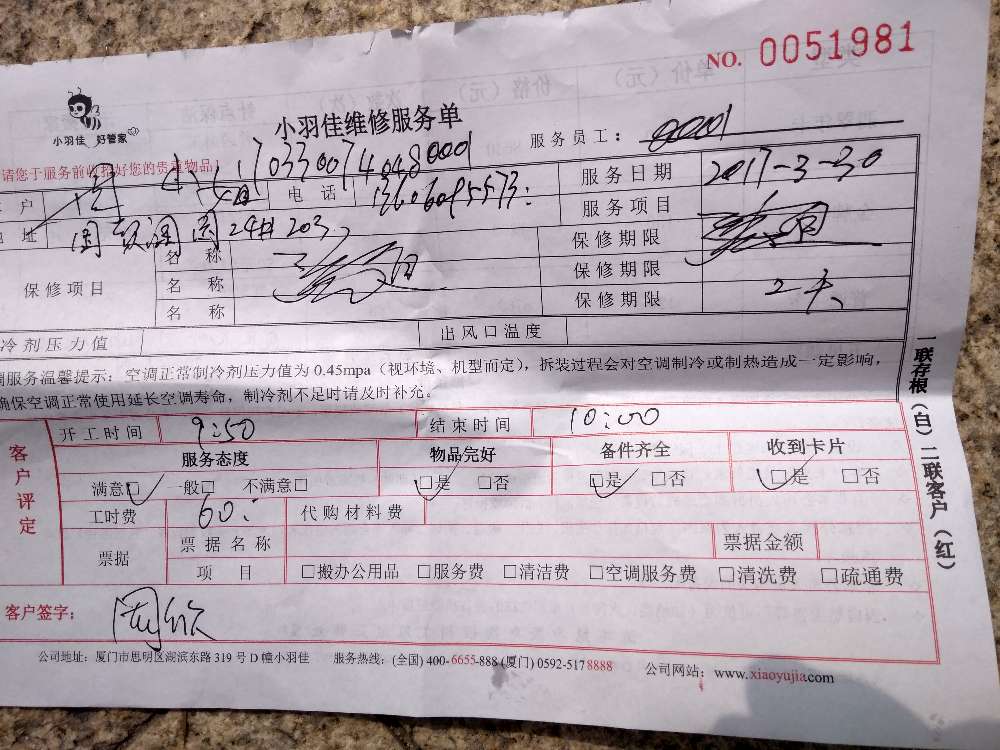 NO. 0051981
小羽佳 好管家
小羽佳维修服务单
服务员工：
请您于服务前收拾好您的贵重物品！
户 电话 服务日期 2017-3-30
地址 24# 203 服务项目
保修项目 名称 保修期限
名称 保修期限
名称 保修期限 2天
冷剂压力值 出风口温度
调服务温馨提示：空调正常制冷剂压力值为 0.45mpa（视环境、机型而定），拆装过程会对空调制冷或制热造成一定影响，
确保空调正常使用延长空调寿命，制冷剂不足时请及时补充。
客户评定
开工时间 9:50 结束时间 10:00
服务态度 物品完好 备件齐全 收到卡片
满意□ 一般□ 不满意□ □是 □否 □是 □否 □是 □否
工时费 60 代购材料费
票据 票据名称 票据金额
项目 □搬办公用品 □服务费 □清洁费 □空调服务费 □清洗费 □疏通费
客户签字：
公司地址：厦门市思明区湖滨东路 319 号 D 幢小羽佳 服务热线：(全国) 400-6655-888 (厦门) 0592-517 8888 公司网站：www.xiaoyujia.com
一联存根（白）二联客户（红）